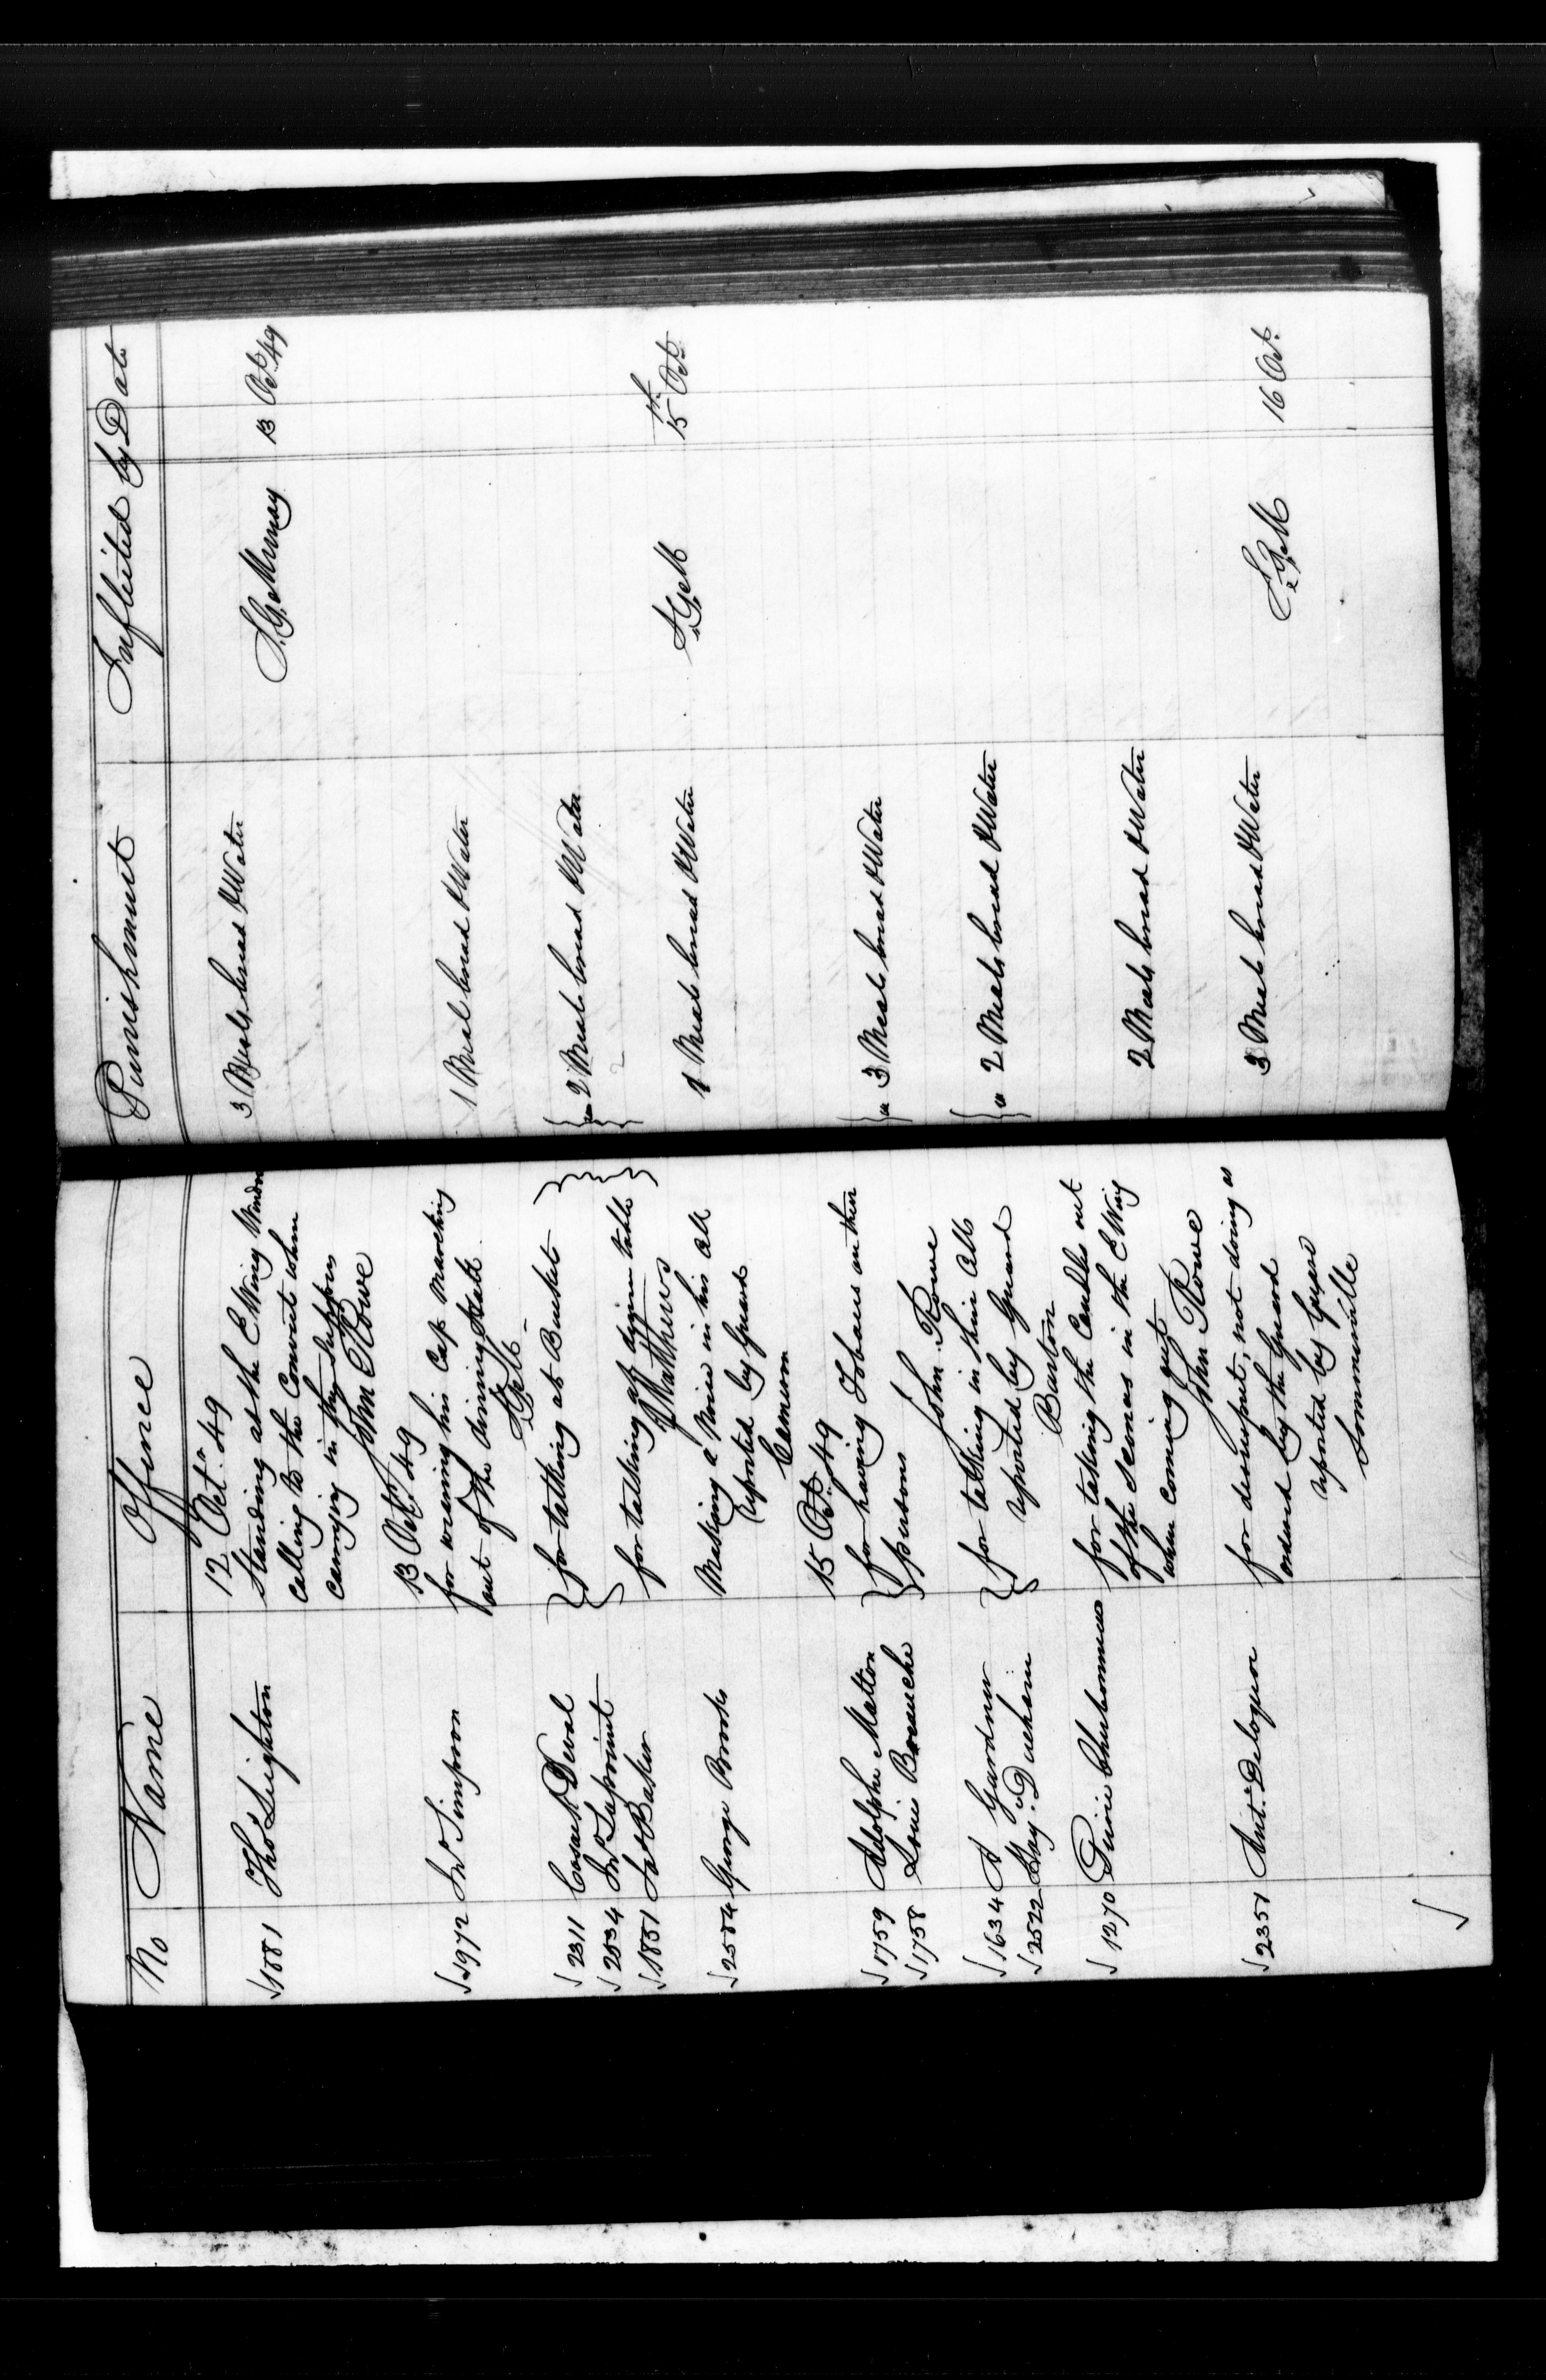 No Name Offence Punishment Inflicted by Date
12 Octr 49
√1881 Thos Leighton Standing at the E Wing Window 3 Meals bread & Water S.G. Murray 13 Oct 49
calling to the Convict when
carrying in the suppers
John Rowe
13 Oct 49
√1972 Jno Simpson for wearing his Cap marching 1 Meal bread & Water
out of the dinning Hall
√2311 Deval for talking at Bucket 2 Meals bread & Water
√2534 Jno Lapoint
√1851 Jas Baker for talking at dinner table
J Matthews
√2584 George Brooks Making a Noise in his Cell 1 Meals bread & Water 15th Oct
reported by Guard
Cameron
15 Oct 49
√1759 Adolphe Matton for having Tobaco on their a 3 Meals bread & Water
√1758 Louis Breauche persons
John Rowe
√1634 A Gardner for talking in their Cell a 2 Meals bread & Water
√2522 Duchain reported by Guard
Burton
√1270 for taking the Candles out 2 Meals bread & Water
of the sconces in the E Wing
when coming out
John Rowe
√2351 Ant. Deloquor for disrespect, not doing as 3 Meals bread & Water 16 Oct
ordered by the Guard
reported by Guard
Sommerville
√